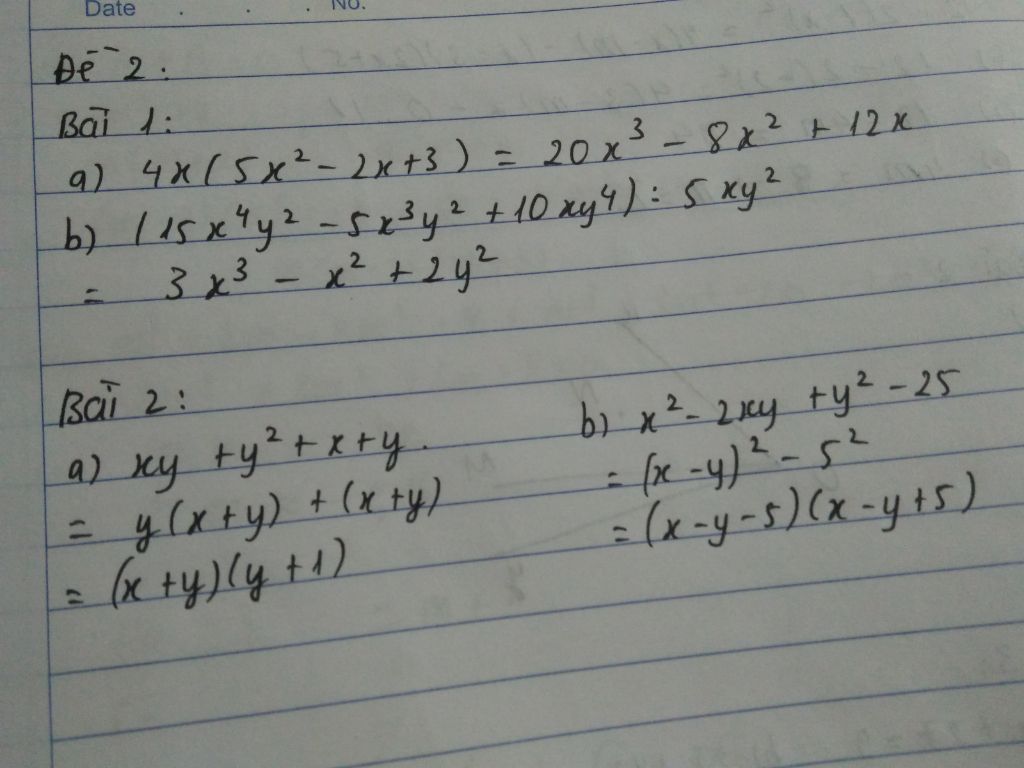 Date . . . No.
Đề 2 :
Bài 1 :
a) 4x ( 5x² - 2x + 3 ) = 20x³ - 8x² + 12x
b) ( 15x⁴y² - 5x³y² + 10xy⁴ ) : 5xy²
= 3x³ - x² + 2y²
Bài 2 :
a) xy + y² + x + y .
= y(x + y) + (x + y)
= (x + y)(y + 1)
b) x² - 2xy + y² - 25
= (x - y)² - 5²
= (x - y - 5)(x - y + 5)